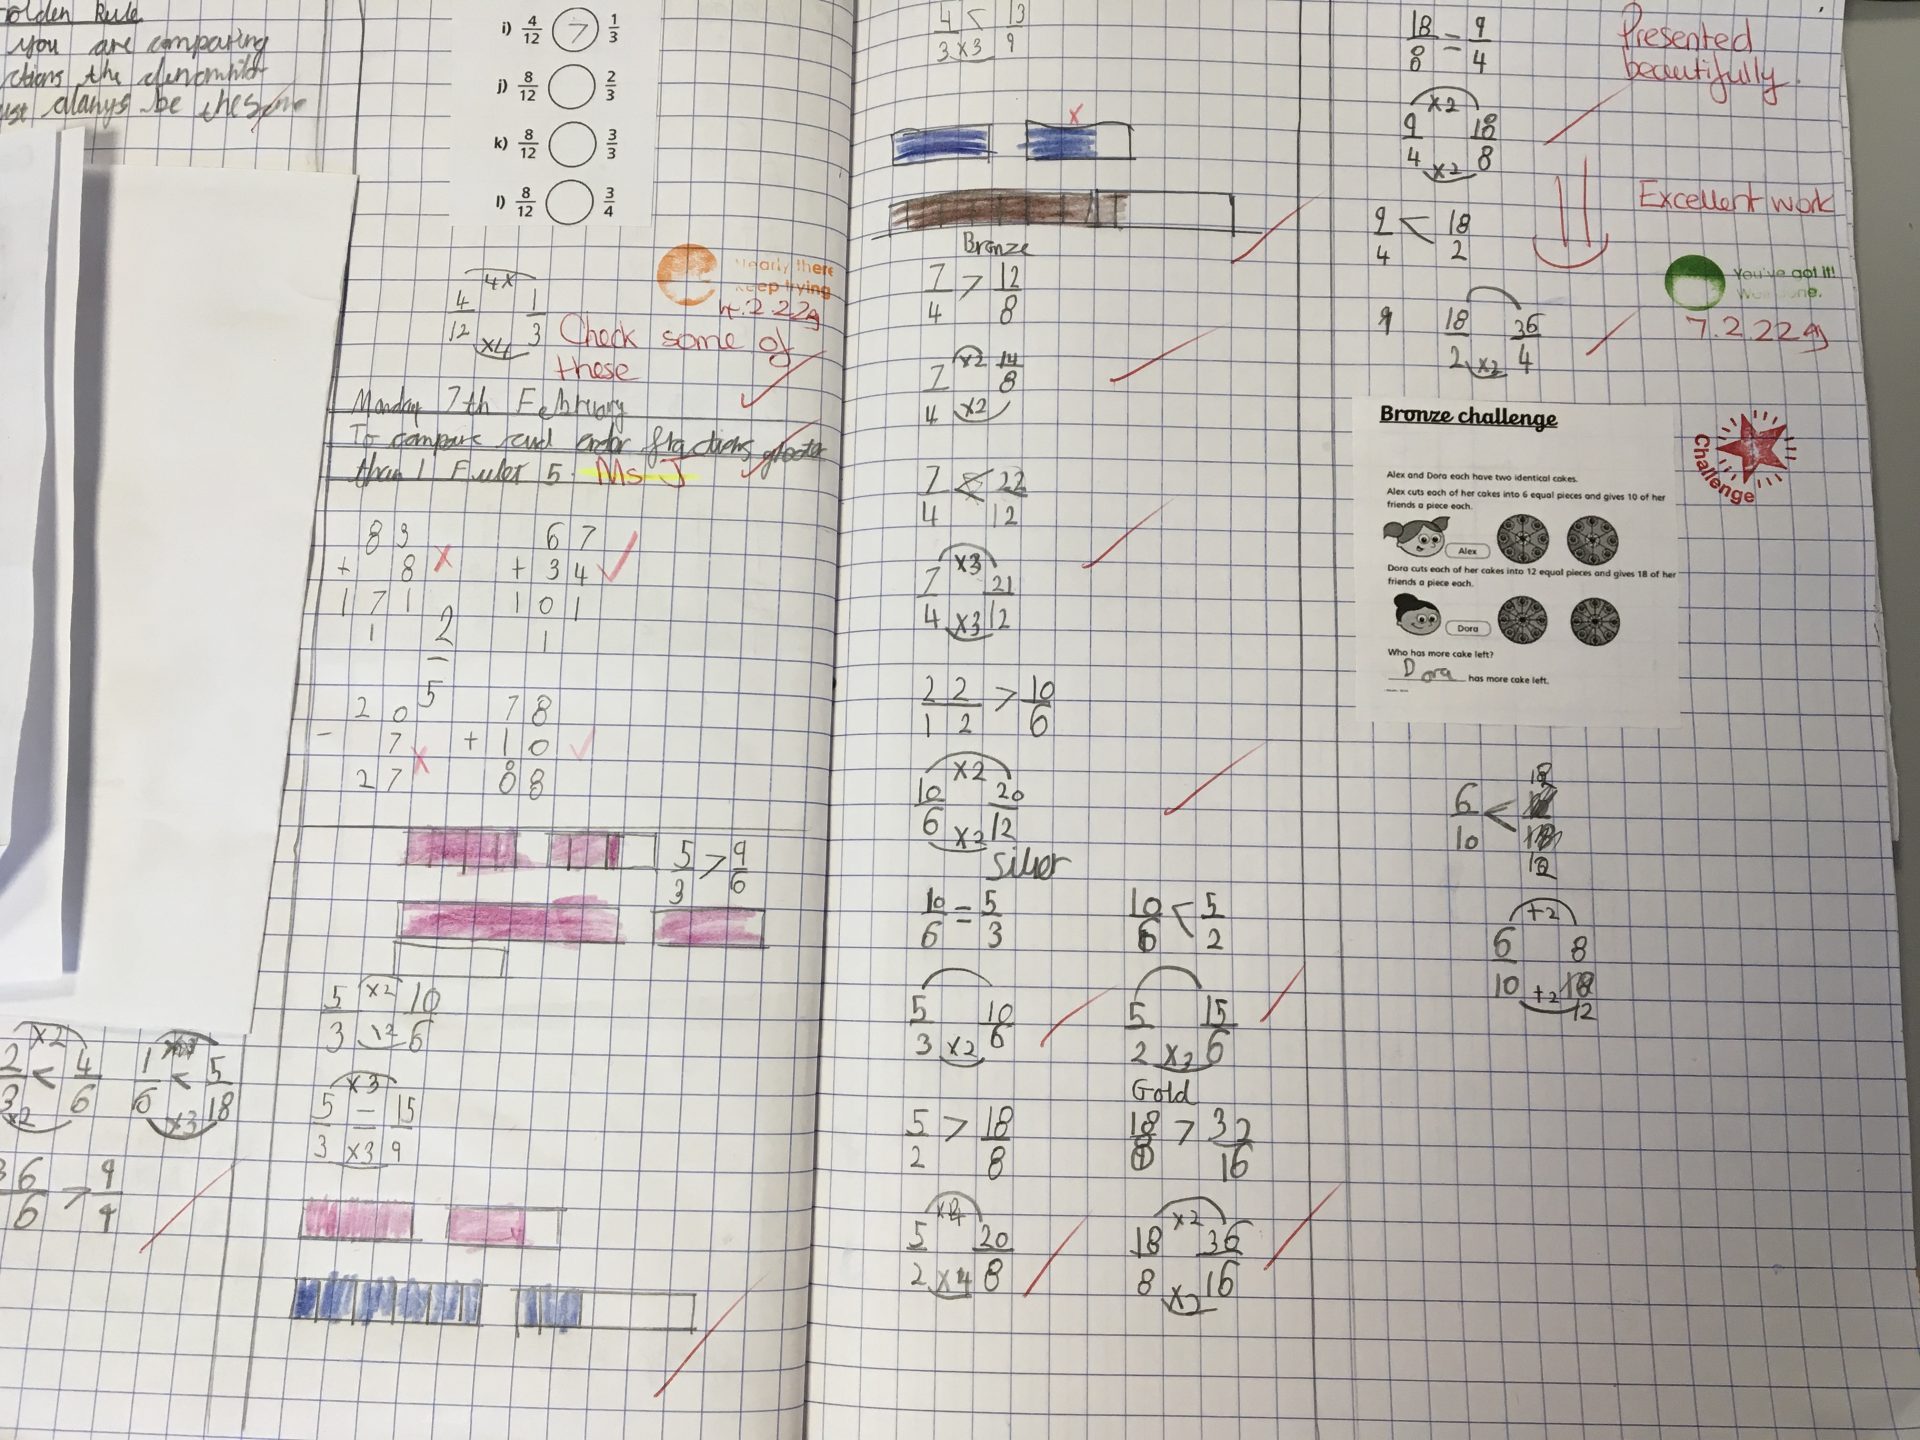 Golden Rule
you are comparing
the
always be the same
i) 4/12 > 1/3
j) 8/12 2/3
k) 8/12 3/3
l) 8/12 3/4
Nearly there
Keep trying
4.2.22
4x
4/12 1/3
x4
Check some of
these
Monday 7th February
To compare and order fractions greater
than 1 Fuler 5. Ms J
83 67
+ 8 + 34
171 101
1 1
2/5
20 78
- 7 + 10
27 88
5/3 > 9/6
x2
5/3 10/6
x3
5/3 = 15/9
x3
x2
2/3 < 4/6 1/6 < 5/18
x2 x3
36/6 > 9/4
4/3 < 13/9
x3
x
Bronze
7/4 > 12/8
x2
7/4 14/8
x2
7/4 < 22/12
x3
7/4 21/12
x3
22/12 > 10/6
x2
10/6 20/12
x2
Silver
10/6 = 5/3 10/6 < 5/2
5/3 10/6 5/2 15/6
x2 x3
Gold
5/2 > 18/8 18/8 > 32/16
x4 x2
5/2 20/8 18/8 36/16
x4 x2
18/8 = 9/4
x2
9/4 18/8
x2
9/4 < 18/2
18/2 36/4
x2
Presented
beautifully.
Excellent work
You've got it!
Well done.
7.2.22
Bronze challenge
Challenge
Alex and Dora each have two identical cakes.
Alex cuts each of her cakes into 6 equal pieces and gives 10 of her
friends a piece each.
Alex
Dora cuts each of her cakes into 12 equal pieces and gives 18 of her
friends a piece each.
Dora
Who has more cake left?
Dora has more cake left.
6/10 < 18/12
+2
6/10 8/12
+2